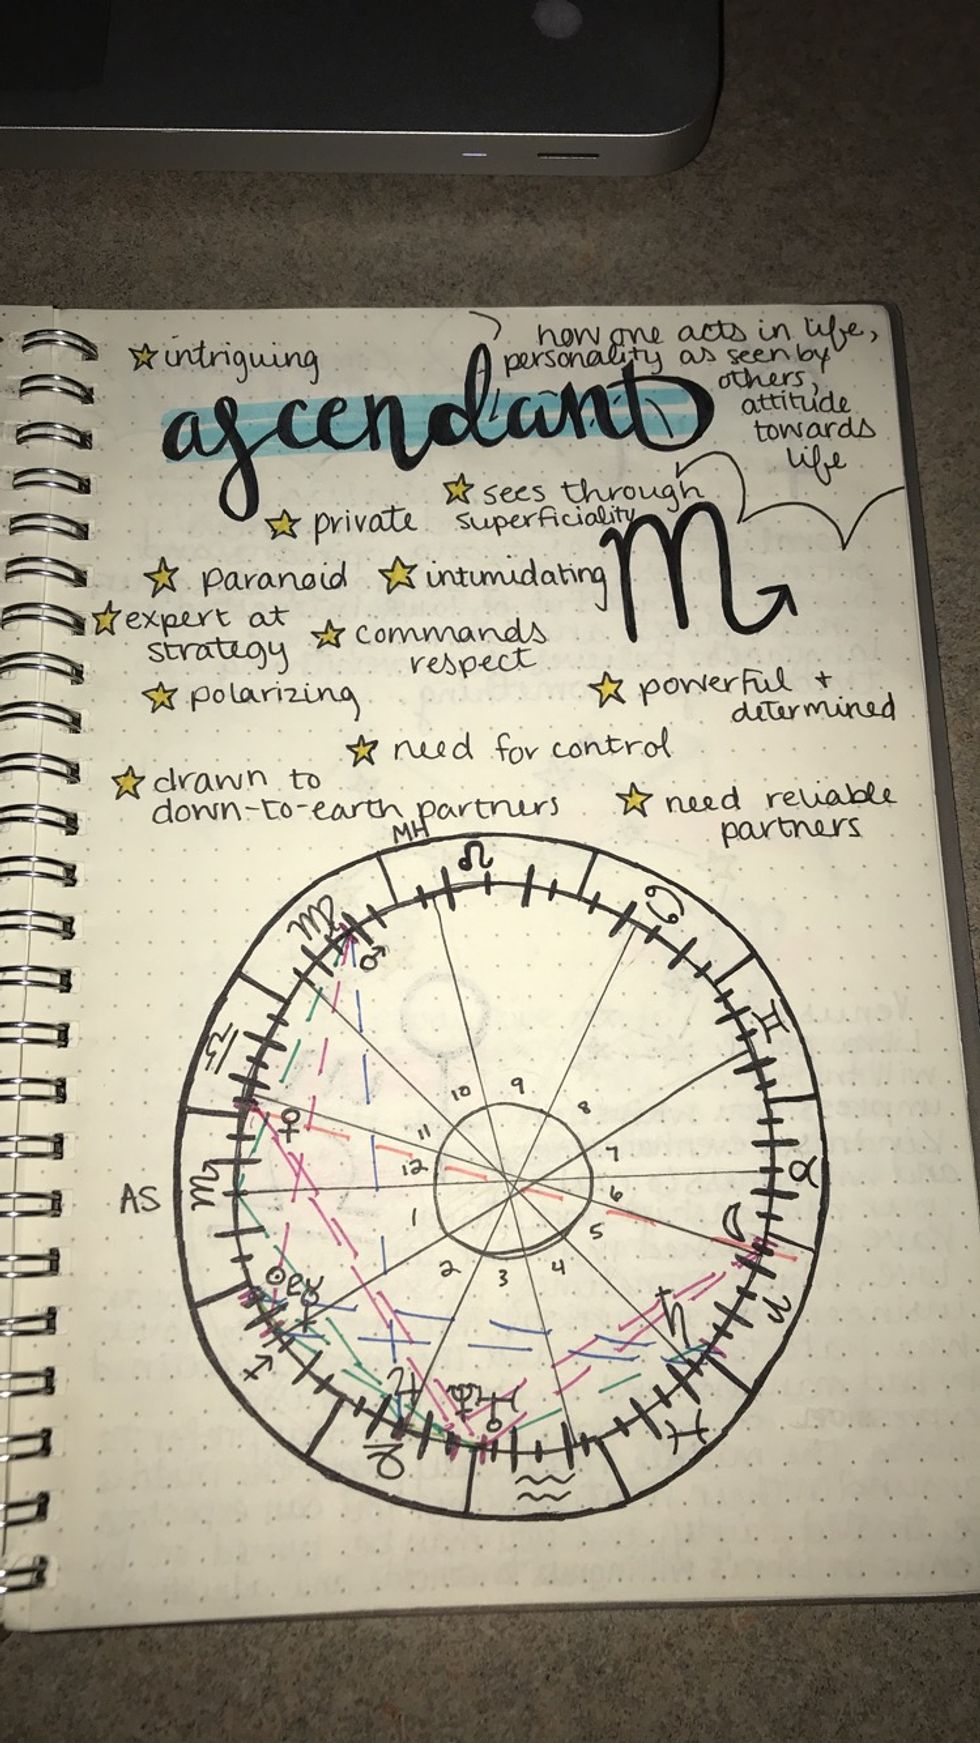 how one acts in life,
☆ intriguing
personality as seen by
others,
attitude
towards
life
ascendant
☆ sees through
superficiality
☆ private
♏
☆ paranoid
☆ intimidating
☆ expert at
strategy
☆ commands
respect
☆ polarizing
☆ powerful +
determined
☆ need for control
☆ drawn to
down-to-earth partners
☆ need reliable
partners
MH
♌
♋
♍
♂
♊
♎
10
9
8
♀
11
7
12
♉
AS
♏
6
1
5
☽
2
3
4
☉
♈
♄
♐
♃
♓
♑
♒